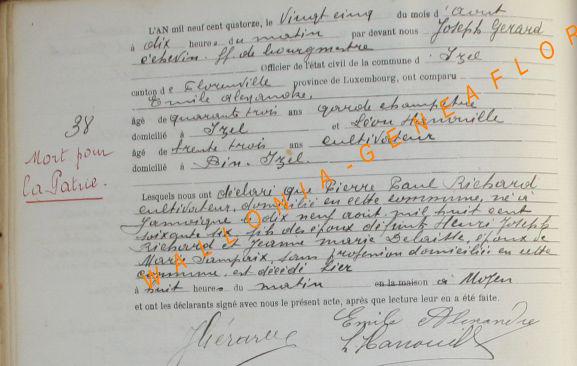 L'AN mil neuf cent quatorze, le Vingt cinq du mois d'Aout
à dix heures du matin par devant nous Joseph Gerard
échevin ff. de bourgmestre
Officier de l'état civil de la commune d Izel
canton de Florenville province de Luxembourg, ont comparu
Emile Alexandre,
âgé de quarante trois ans garde champêtre
domicilié à Izel et Léon Hanouille
âgé de trente trois ans cultivateur
domicilié à Pin-Izel
38
Mort pour
la Patrie.
Lesquels nous ont déclaré que Pierre Paul Richard
cultivateur, domicilié en cette commune, né à
Jamoigne, dix neuf aout mil huit cent
soixante six, fils des époux défunts Henri Joseph
Richard et Jeanne Marie Delaitte, époux de
Marie Lampaix, sans profession domiciliée en cette
commune, est décédé hier
à huit heures du matin en la maison à Moyen
et ont les déclarants signé avec nous le présent acte, après que lecture leur en a été faite.
JGérard
Emile Alexandre
L Hanouille
WALLONIA-GENEAFLOR